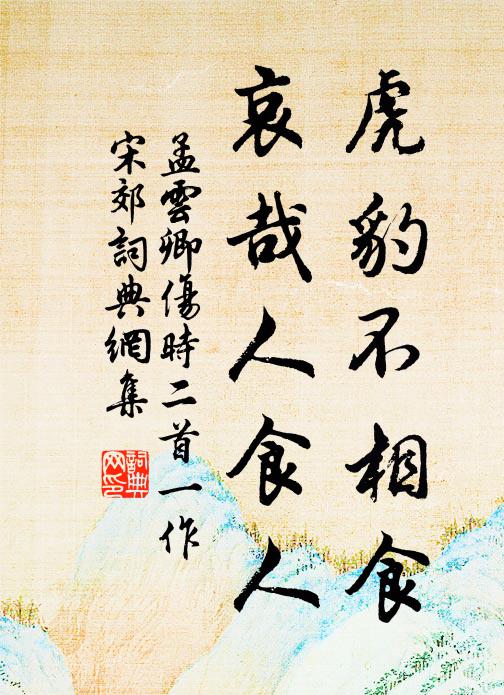 虎豹不相食
哀哉人食人
孟雲卿傷時二首一作
宋郊詞典網集
詞典
网印